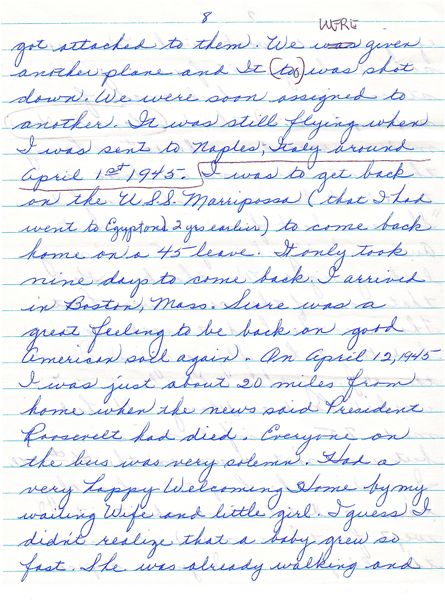 8
WERE
got attached to them. We was given
another plane and It (too) was shot
down. We were soon assigned to
another. It was still flying when
I was sent to Naples, Italy around
April 1st 1945. I was to get back
on the U.S.S. Marripossa (that I had
went to Egypt on 2 yrs earlier) to come back
home on a 45 leave. It only took
nine days to come back. I arrived
in Boston, Mass. Sure was a
great feeling to be back on good
American soil again. On April 12, 1945
I was just about 20 miles from
home when the news said President
Roosevelt had died. Everyone on
the bus was very solemn. Had a
very happy Welcoming Home by my
waiting Wife and little girl. I guess I
didn't realize that a baby grew so
fast. She was already walking and